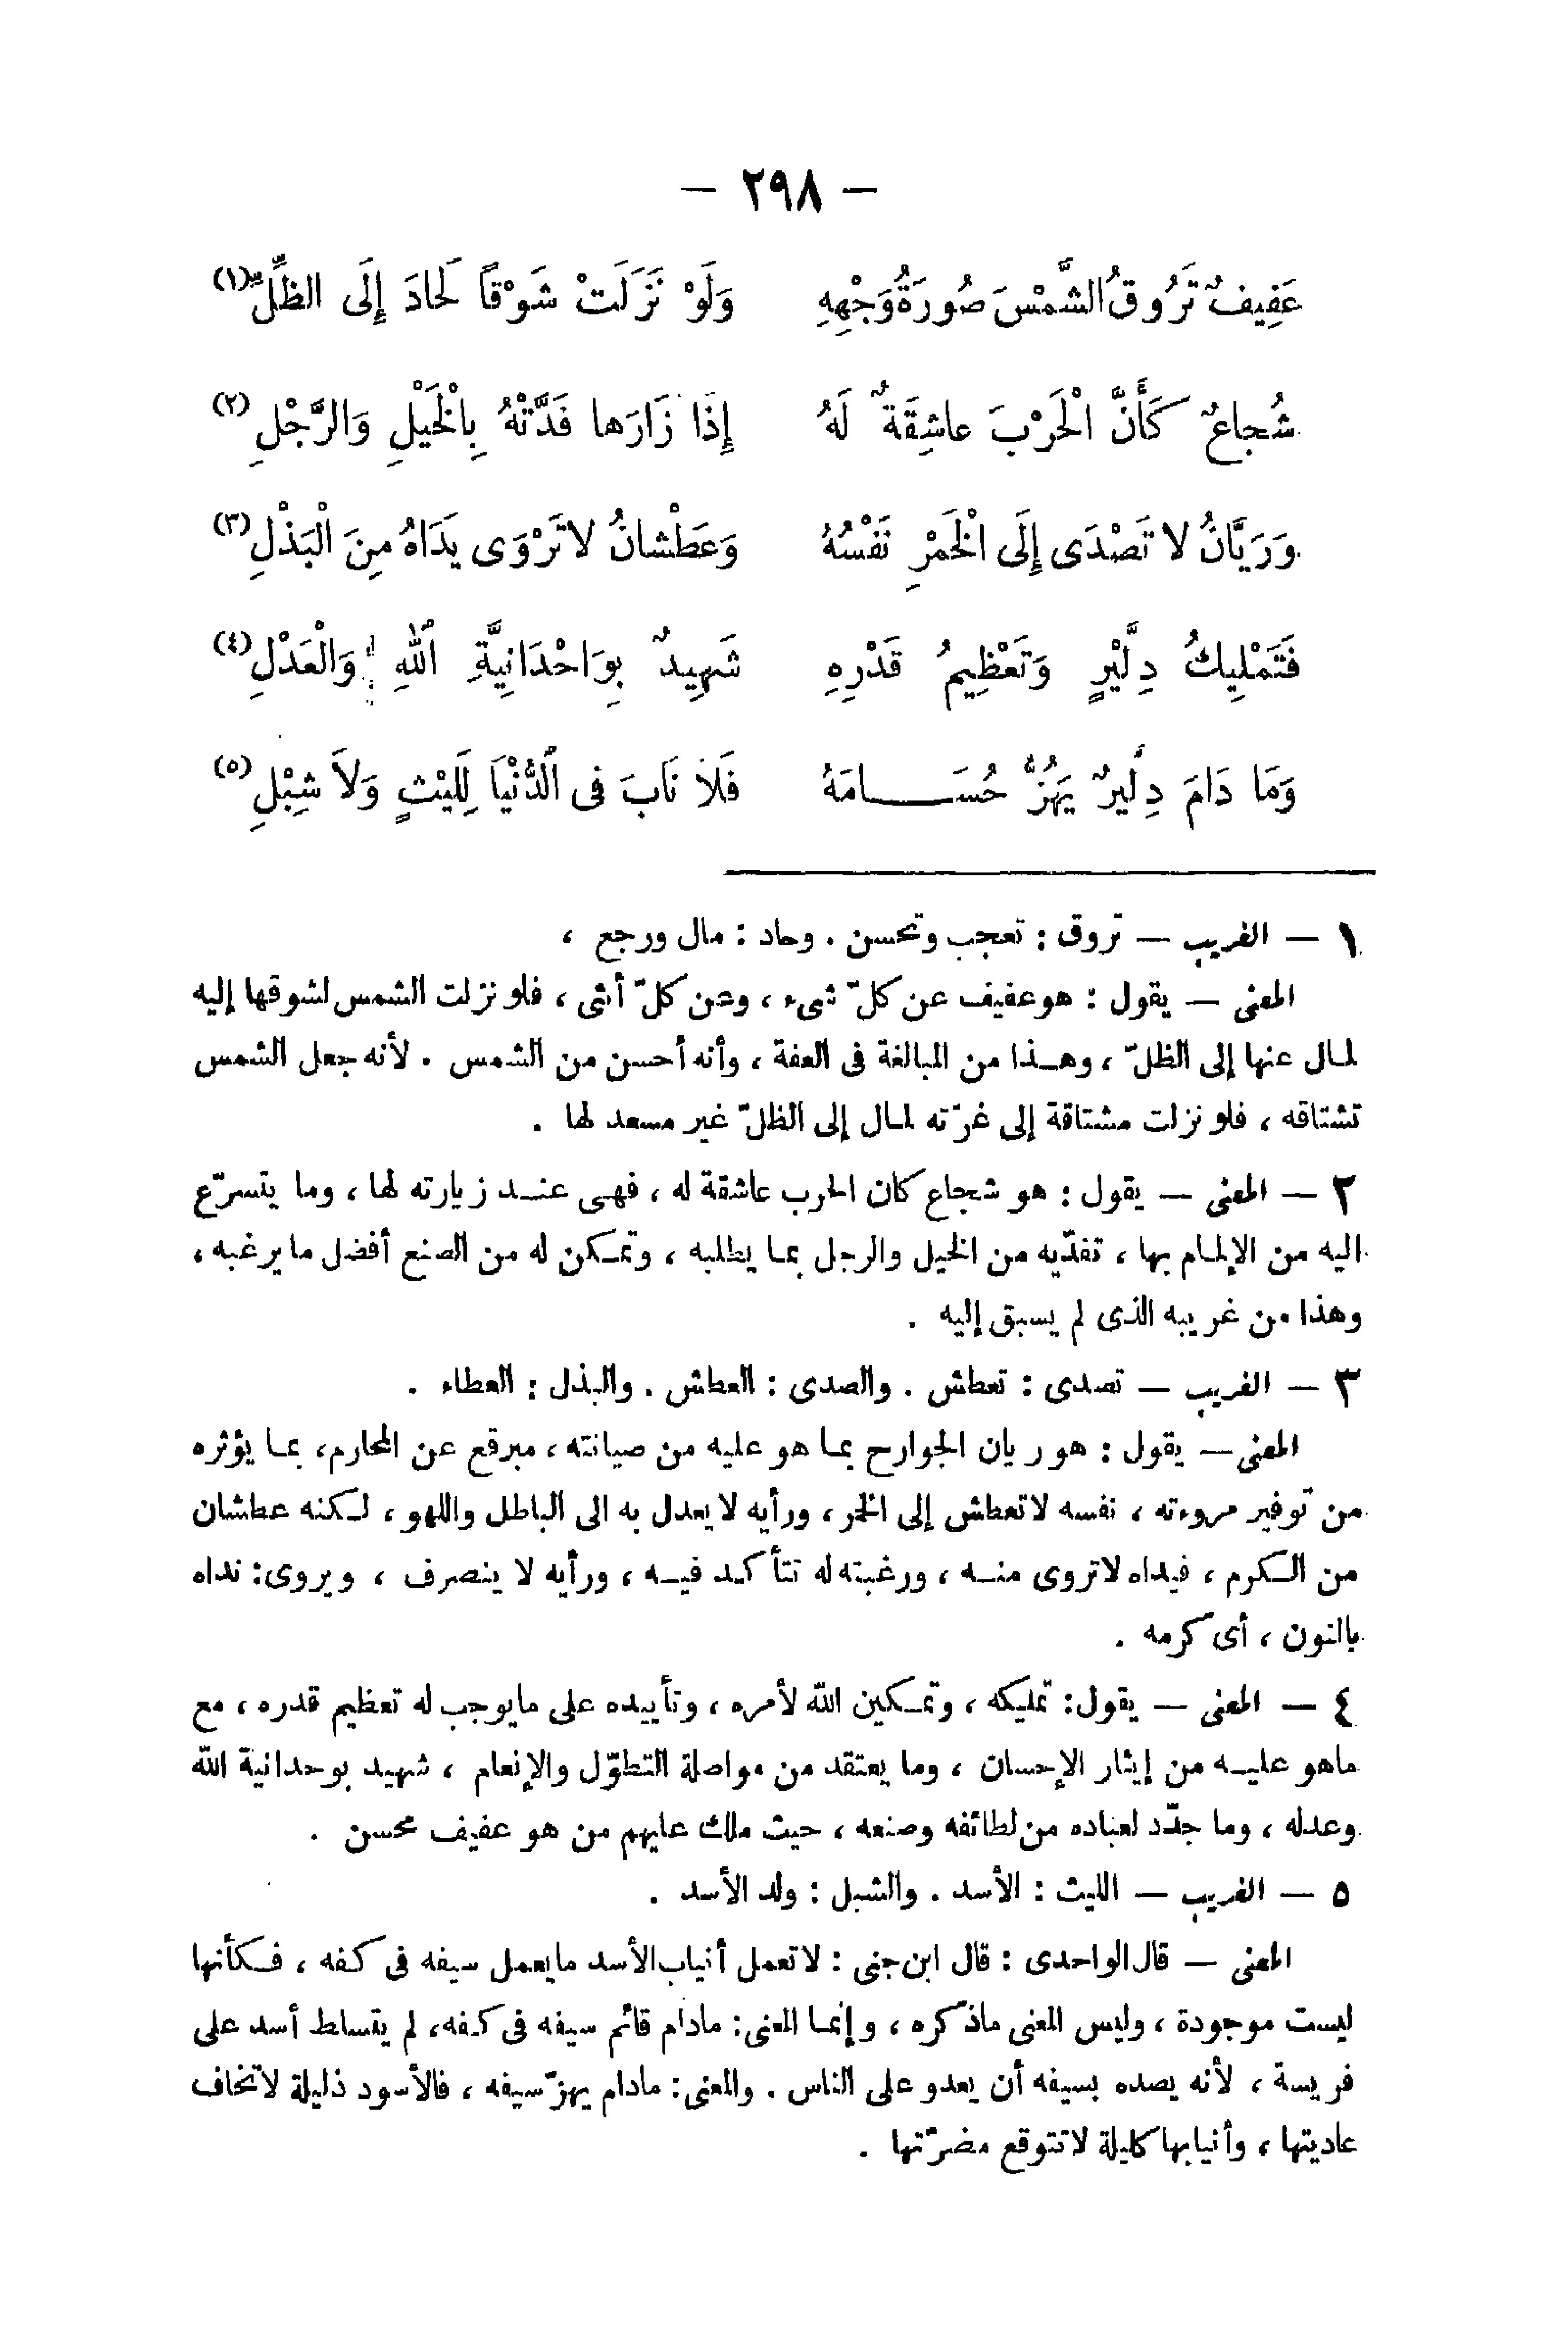 — ٢٩٨ —
عَفِيفٌ تَرُوقُ الشَّمْسَ صُورَةُ وَجْهِهِ وَلَوْ نَزَلَتْ شَوْقاً لَحَادَ إِلَى الظِّلِّ (١)
شُجاعٌ كَأَنَّ الْحَرْبَ عاشِقَةٌ لَهُ إِذَا زَارَها فَدَّتْهُ بِالْخَيْلِ وَالرَّجْلِ (٢)
وَرَيَّانُ لا تَصْدَى إِلَى الْخَمْرِ نَفْسُهُ وَعَطْشانُ لا تَرْوَى يَدَاهُ مِنَ الْبَذْلِ (٣)
فَتَمْلِيكُ دِلَّيْرٍ وَتَعْظِيمُ قَدْرِهِ شَهِيدٌ بِوَاحْدَانِيَّةِ اللهِ وَالْعَدْلِ (٤)
وَمَا دَامَ دِلَّيرٌ يَهُزُّ حُسَـــامَهُ فَلَا نَابَ فى الدُّنْيَا لِلَيْثٍ وَلاَ شِبْلِ (٥)
١ — الغريب — تروق : تعجب وتحسن . وحاد : مال ورجع ،
المعنى — يقول : هو عفيف عن كلّ شىء ، وعن كلّ أنثى ، فلو نزلت الشمس لشوقها إليه
لمال عنها إلى الظلّ ، وهـذا من المبالغة فى العفة ، وأنه أحسن من الشمس . لأنه جعل الشمس
تشتاقه ، فلو نزلت مشتاقة إلى غرّته لمال إلى الظلّ غير مسعد لها .
٢ — المعنى — يقول : هو شجاع كان الحرب عاشقة له ، فهى عنـد زيارته لها ، وما يتسرّع
اليه من الإلمام بها ، تفدّيه من الخيل والرجل بما يطلبه ، وتمكن له من الصنع أفضل ما يرغبه ،
وهذا من غريبه الذى لم يسبق إليه .
٣ — الغريب — تصدى : تعطش . والصدى : العطش . والبذل : العطاء .
المعنى — يقول : هو ريان الجوارح بما هو عليه من صيانته ، مبرقع عن المحارم، بما يؤثره
من توفير مروءته ، نفسه لا تعطش إلى الخمر ، ورأيه لا يعدل به الى الباطل واللهو ، لكنه عطشان
من الكرم ، فيداه لا تروى منـه ، ورغبته له تتأكيد فيـه ، ورأيه لا ينصرف ، ويروى: نداه
بالنون ، أى كرمه .
٤ — المعنى — يقول: تمليكه ، وتمكين الله لأمره ، وتأييده على مايوجب له تعظيم قدره ، مع
ماهو عليـه من إيثار الإحسان ، وما يعتقد من مواصلة التطوّل والإنعام ، شهيد بوحدانية الله
وعدله ، وما جدّد لعباده من لطائفه وصنعه ، حيث ملك عليهم من هو عفيف محسن .
٥ — الغريب — الليث : الأسد . والشبل : ولد الأسد .
المعنى — قال الواحدى : قال ابن جنى : لا تعمل أنياب الأسد مايعمل سيفه فى كفه ، فكأنها
ليست موجودة ، وليس المعنى ماذكره ، وإنما المعنى: مادام قائم سيفه فى كفه، لم يتسلط أسد على
فريسة ، لأنه يصده بسيفه أن يعدو على الناس . والمعنى: مادام يهزّ سيفه ، فالأسود ذليلة لا تخاف
عاديتها ، وأنيابها كليلة لا تتوقع مضرّتها .